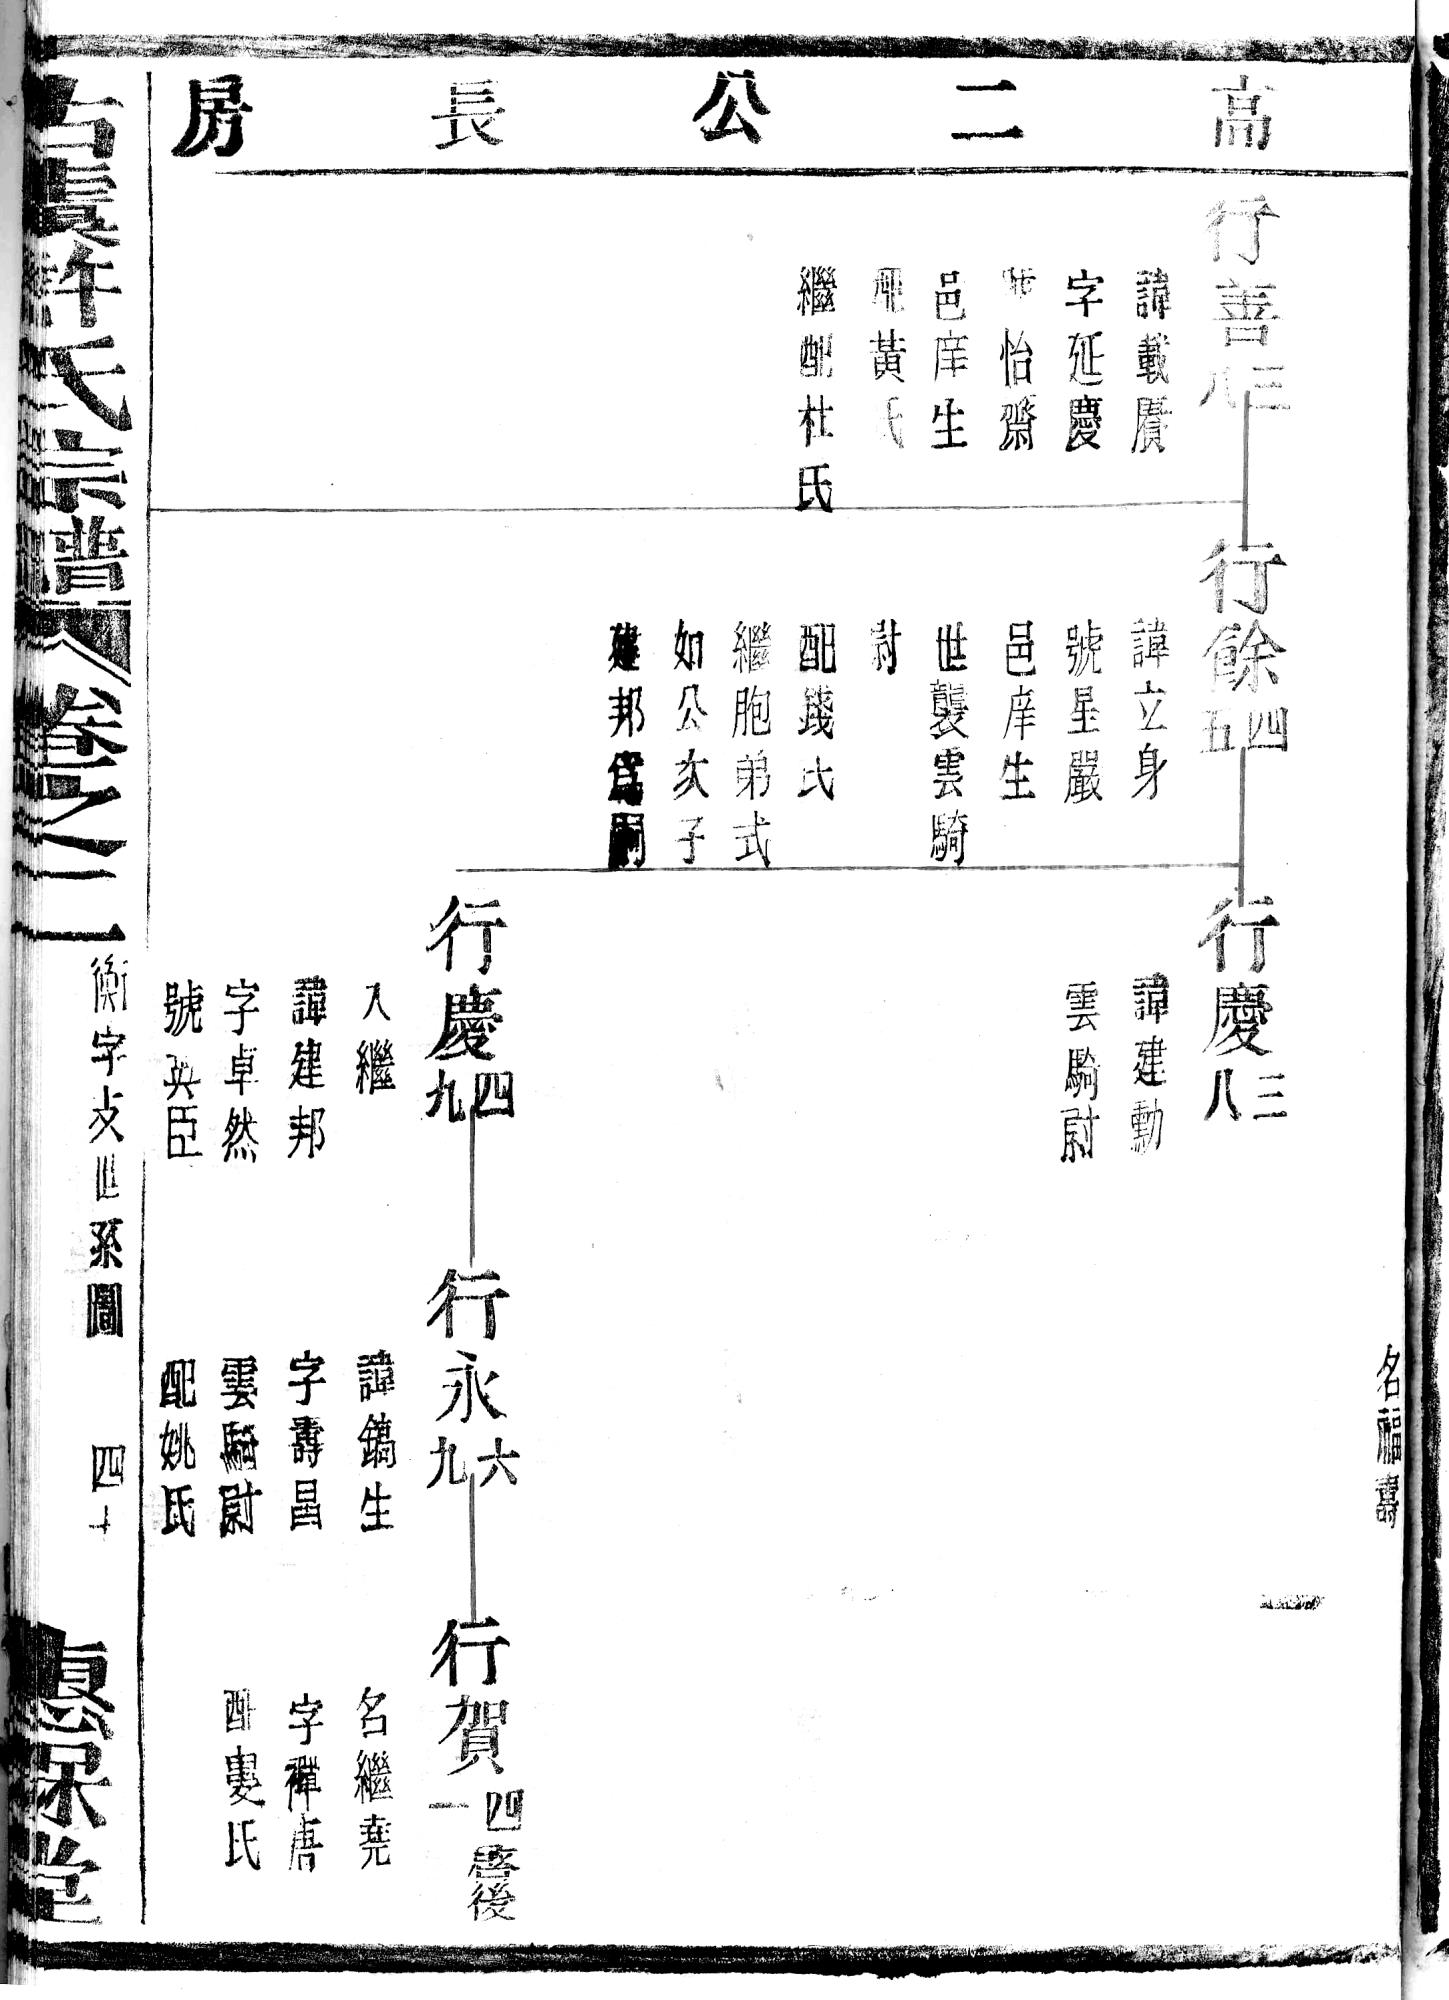 高二公長房
名福壽
行善三八
諱載賡
字延慶
怡齋
邑庠生
配黃氏
繼配杜氏
行餘四五
諱立身
號星嚴
邑庠生
世襲雲騎
尉
配錢氏
繼胞弟式
如公次子
建邦爲嗣
行慶三八
諱建勳
雲騎尉
行慶四九
入繼
諱建邦
字卓然
號英臣
行永六九
諱鎬生
字壽昌
雲騎尉
配姚氏
行賀四一
善後
名繼堯
字禪唐
配婁氏
古虞許氏宗譜
卷之二
衡字支世系圖
四十
惠保堂